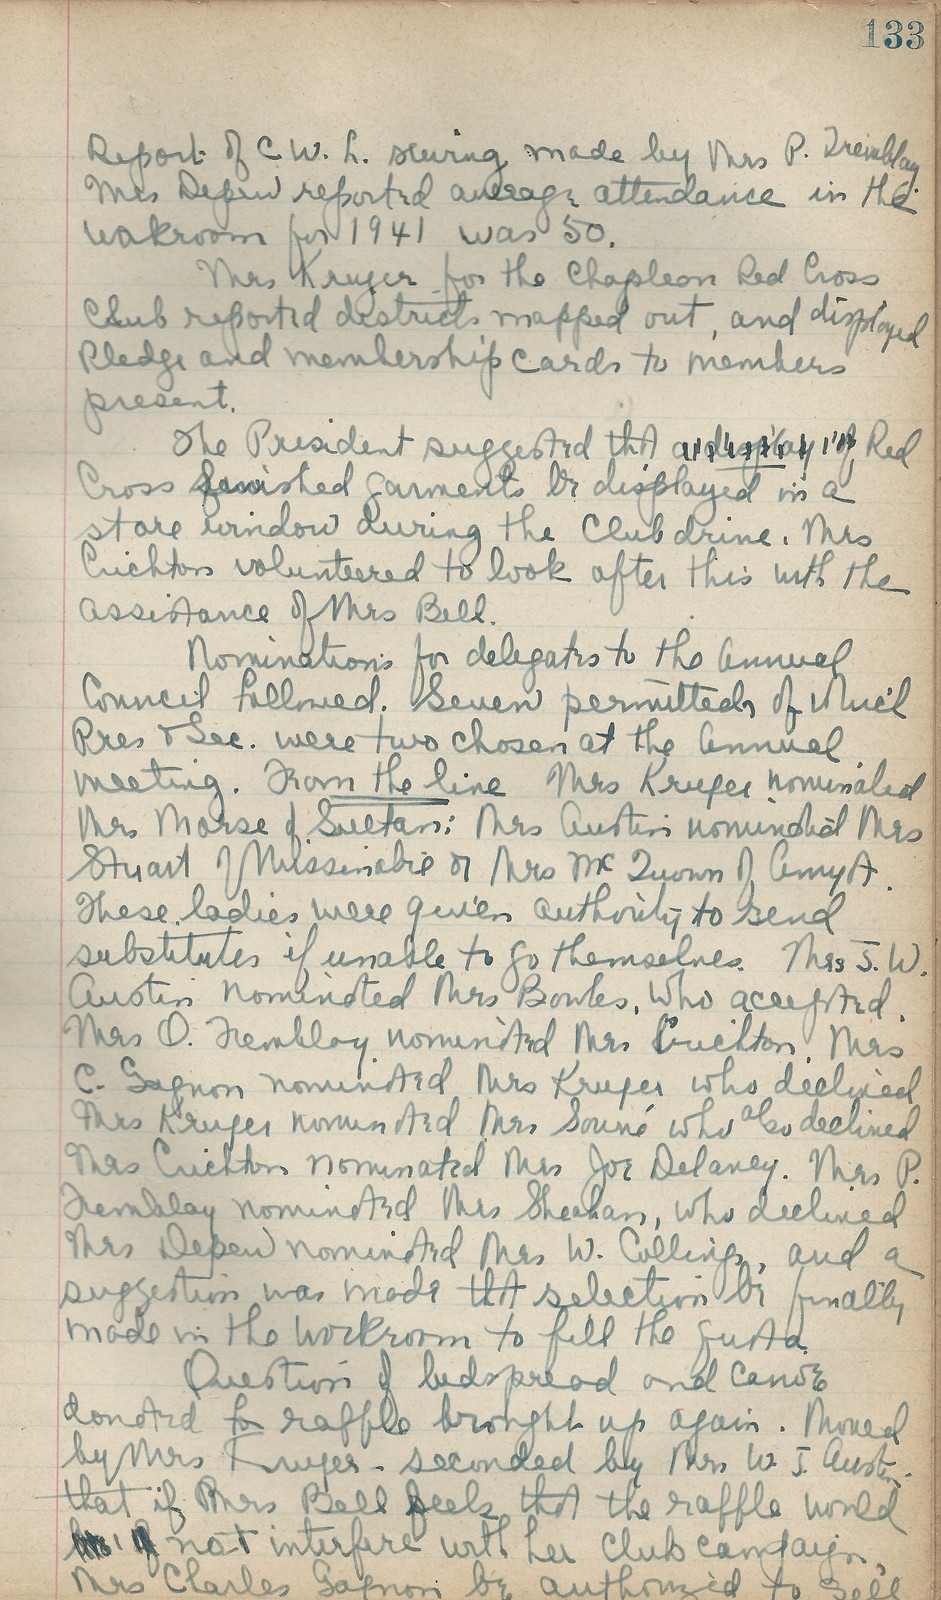 133
Report of C.W.L. sewing made by Mrs P. Tremblay
Mrs Depew reported average attendance in the
workroom for 1941 was 50.
Mrs Kruger for the Chapleau Red Cross
Club reported districts mapped out, and displayed
Pledge and membership cards to members
present.
The President suggested that a display of Red
Cross finished garments be displayed in a
store window during the Club drive. Mrs
Crichton volunteered to look after this with the
assistance of Mrs Bell.
Nominations for delegates to the Annual
Council followed. Seven permitted, of which
Pres & Sec. were two chosen at the Annual
meeting. From the line Mrs Kruger nominated
Mrs Morse of Sultan; Mrs Austin nominated Mrs
Stuart of Missinabie or Mrs McQuown of Amyot.
These ladies were given authority to send
substitutes if unable to go themselves. Mrs J. W.
Austin nominated Mrs Bowles, who accepted.
Mrs O. Tremblay nominated Mrs Crichton. Mrs
C. Gagnon nominated Mrs Kruger who declined
Mrs Kruger nominated Mrs who also declined
Mrs Crichton nominated Mrs Joe Delaney. Mrs P.
Tremblay nominated Mrs Sheehan, who declined
Mrs Depew nominated Mrs W. Collings, and a
suggestion was made that selection be finally
made in the workroom to fill the quota.
Question of bedspread and canoe
donated for raffle brought up again. Moved
by Mrs Kruger - seconded by Mrs W. J. Austin.
that if Mrs Bell feels that the raffle would
not interfere with her Club campaign,
Mrs Charles Gagnon be authorized to sell